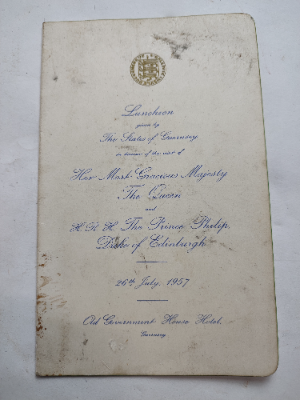 Luncheon
given by
The States of Guernsey
in honour of the visit of
Her Most Gracious Majesty
The Queen
and
H. R. H. The Prince Philip,
Duke of Edinburgh
26th July, 1957
Old Government House Hotel,
Guernsey